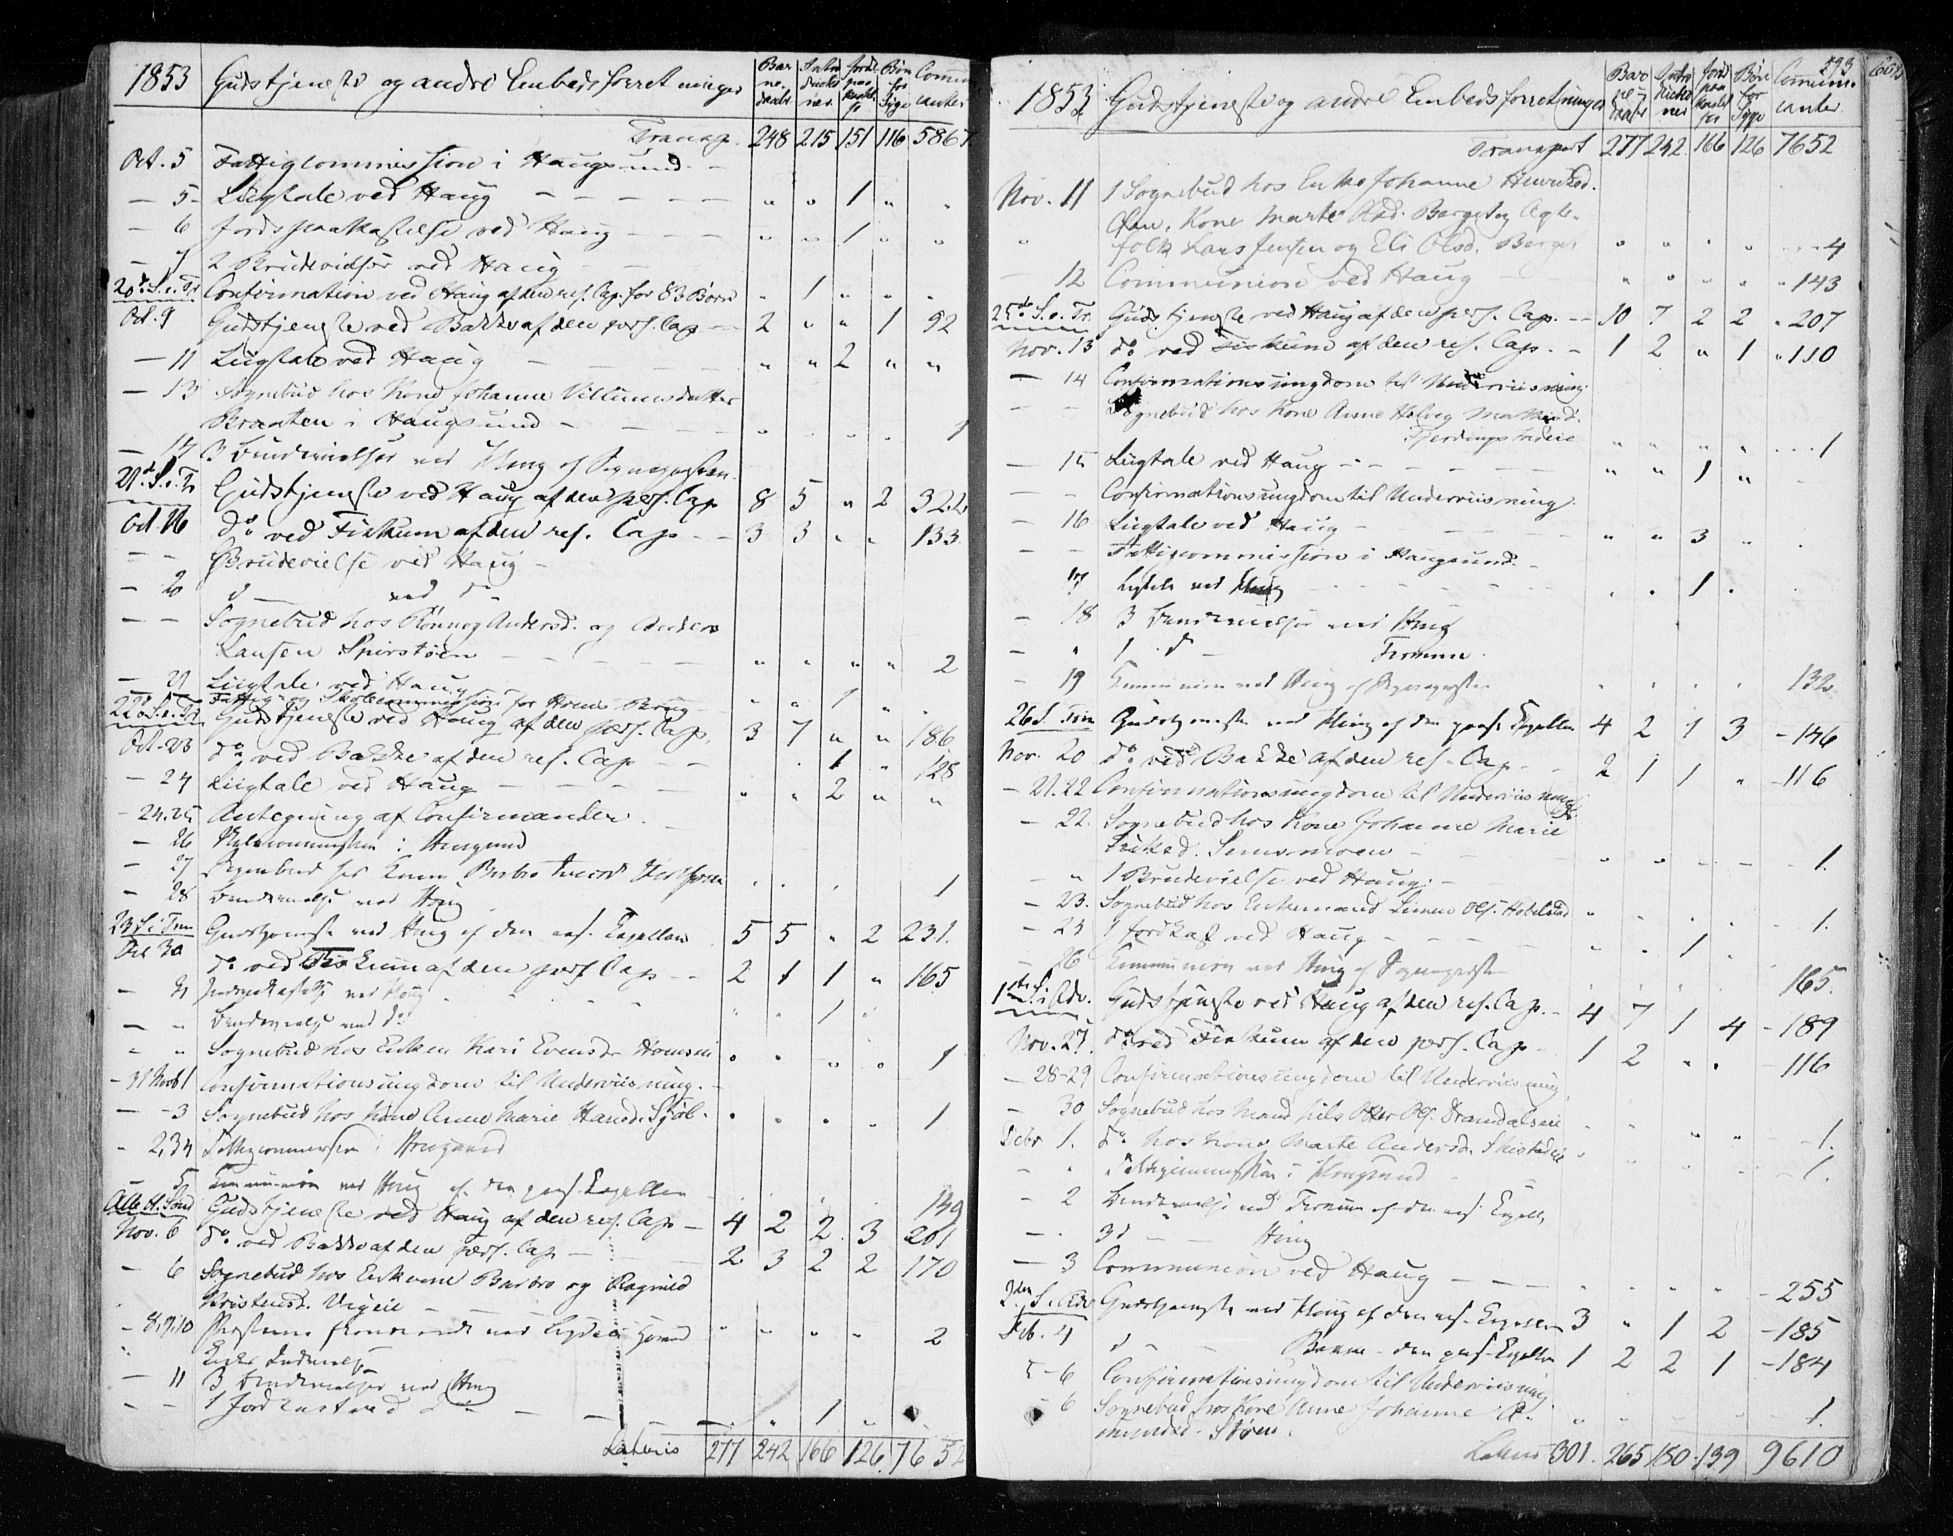 1853 Gudstjeneste og andre Embedsforretninger Barnedaab Introductioner Jordspaakastelse Bøn for Syge Communicanter
Transp. 248 215 151 116 5867
Oct. 5 Fattigcommission i Haugsund
— 5 Liigtale ved Haug 1
— 6 Jordspaakastelse ved Haug 1
— 7 2 Brudevielser ved Haug
20de S. e. Tr. Confirmation ved Haug af den res. Cap. for 83 Børn 1
Oct. 9 Gudstjeneste ved Bakke af den pers. Cap 2 1 92
— 11 Liigtale ved Haug 2
— 13 Sognebud hos Kone Johanne Villumsdatter
Braaten i Haugsund 1
— 14 3 Brudevielser ved Haug af Sognepræsten
21de S. e. Tr. Gudstjeneste ved Haug af den pers. Cap 8 5 2 322
Oct. 16 do ved Fiskum af den res. Cap 3 3 133
— — Brudevielse ved Haug
— 20 d ved do
— — Sognebud hos Rønnog Andersd. og Anders
Larsen Spirstøen 2
— 21 Liigtale ved Haug 1
Fattig- og Skolecommission for Haug
22de S. e. Tr. Gudstjeneste ved Haug af den pers. Cap. 3 7 186
Oct. 23 do ved Bakke af den res. Cap 1 128
— 24 Liigtale ved Haug 2
— 24.25 Antegning af Confirmander
— 26 Skolecommission i Haugsund
— 27 Sognebud hos Kone 1
— 28 Brudevielse ved Haug
23 S. e. Trin Gudstjeneste ved Haug af den res. Capellan 5 5 2 231
Oct 30 do ved Fiskum af den pers. Cap 2 1 1 165
— 31 Jordspaakastelse ved Haug 1
— " Brudevielse ved do
" " Sognebud hos Enken Kari Evensdr 1
— 31 Novb 1 Confirmationsungdom til Underviisning
— 3 Sognebud hos Kone Anne Marie Hansd. 1
— 2,3,4 Fattigcommission i Haugsund
5 Communion ved Haug af den pers. Capellan 149
Alle H. Sønd Gudstjeneste ved Haug af den res. Cap 4 2 2 3 201
Nov. 6 do ved Bakke af den pers. Cap 2 3 2 2 170
— 6 Sognebud hos Enkerne Barbro og Ragnild
Kristensd. Vigeie 2
— 8,9,10
— 11 3 Brudevielser ved Haug
— — 1 Jordkast ved do 1
Lateris 277 242 166 126 7652
293
1853 Gudstjeneste og andre Embedsforretninger Barnedaab Introductioner Jordspaakastelser Bøn for Syge Communicanter
Transport 277 242 166 126 7652
Nov. 11 1 Sognebud hos Enke Johanne Henriksd.
Kone Marte Berget og Ægte-
folk Lars Jensen og Eli Olsd. Berget 4
— 12 Communion ved Haug 143
25de S. e. Tr. Gudstjeneste ved Haug af den pers. Cap. 10 7 2 2 207
Nov. 13 do ved Fiskum af den res. Cap. 1 2 1 110
— 14 Confirmationsungdom til Underviisning
— — Sognebud hos Kone Anne Helvig
1
— 15 Liigtale ved Haug 1
— — Confirmationsungdom til Underviisning
— 16 Liigtale ved Haug 3
— — Fattigcommission i Haugsund
17 Ligtale ved Haug 1
— 18 3 Brudevielser ved Haug
— " 1 d Fiskum
— 19 Communion ved Haug af Sognepræsten 132
26 S. Trin Gudstjeneste ved Haug af den pers. Capellan 4 2 1 3 146
Nov. 20 do ved Bakke af den res. Cap 2 1 1 116
— 21.22 Confirmationsungdom til Underviisning
— 22. Sognebud hos Kone Johanne Marie
1.
— " 1 Brudevielse ved Haug
— 23. Sognebud hos Enkemand Simen Ols. 1.
— 25 1 Jordkast ved Haug 1
— 26 Communion ved Haug af Sognepræsten 165
1ste S. i Adv. Gudstjeneste ved Haug af den res. Cap. 4 7 1 4 189
Nov. 27. do ved Fiskum af den pers. Cap 1 2 116
— 28-29 Confirmationsungdom til Underviisning
— 30 Sognebud hos Mand Nils Otter Ols. 1.
Debr 1. do hos Kone Marte Andersd. 1.
— " Fattigcommission i Haugsund
— 2 Brudevielse ved Fiskum af den res. Capell.
— . 3 d Haug
— 3 Communion ved Haug 255
2den S. i Adv Gudstjeneste ved Haug af den res. Capellan 3 1 2 185
Deb. 4 d Bakke - den pers. Capellan 1 2 2 1 184
5-6 Confirmationsungdom til Underviisning
— 6 Sognebud hos Kone Anne Johanne
Støen. 1.
Lateris 301 265 180 139 9610